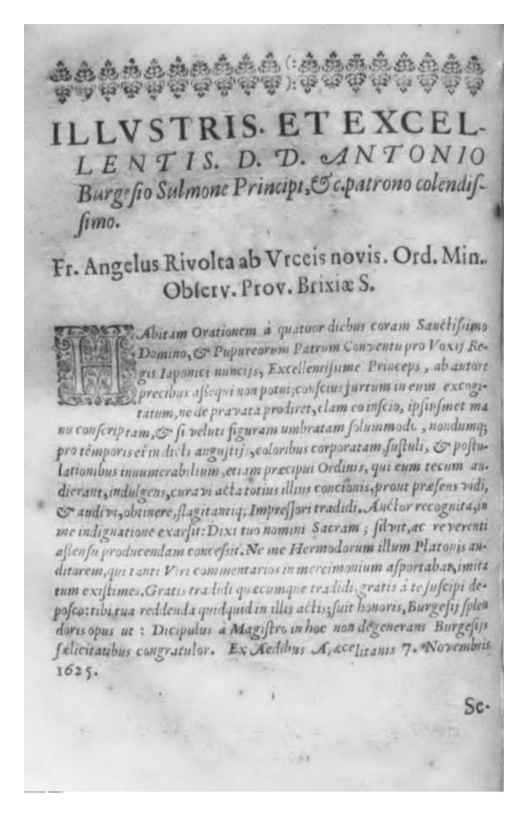 ILLVSTRIS. ET EXCEL-
LENTIS. D. D. ANTONIO
Burgeſio Sulmone Principi, &c. patrono colendiſ-
ſimo.
Fr. Angelus Rivolta ab Vrceis novis. Ord. Min.
Obſerv. Prov. Brixiæ S.
HAbitam Orationem à quatuor diebus coram Sanctiſsimo
Domino, & Pupureorum Patrum Conventu pro Voxij Re-
gis Iaponici nuncijs, Excellentiſsime Princeps, ab autore
precibus aſſequi non potui; conſcius furtum in eum excogi-
tatum, ne depravata prodiret, clam eo inſcio, ipſiuſmet ma
nu conſcriptam, & ſi veluti figuram umbratam ſolummodo, nondumq;
pro temporis ei indicti anguſtijs, coloribus corporatam, ſuſtuli, & poſtu-
lationibus innumerabilium, etiam præcipui Ordinis, qui eum tecum au-
dierant, indulgens, curavi acta totius illius concionis, prout præſens vidi,
& audivi, obtinere, flagitantiq; Impreſſori tradidi. Auctor recognita, in
me indignatione exarſit: Dixi tuo nomini Sacram; ſilvit, ac reverenti
aſſenſu producendam conceſsit. Ne me Hermodorum illum Platonis au-
ditorem, qui tanti Viri commentarios in mercimonium aſportabat, imita
tum exiſtimes. Gratis tradidi quæcumque tradidi, gratis à te ſuſcipi de-
poſco: tibi tua reddenda quidquid in illis actis; fuit honoris, Burgeſij ſplen
doris opus ut: Dicipulus à Magiſtro in hoc non degenerans Burgeſijs
fælicitatibus congratulor. Ex Aedibus 7. Novembris
1625.
Se-